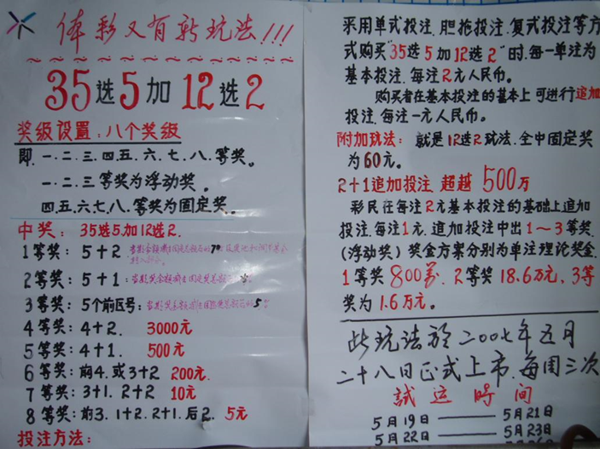 体彩又有新玩法!!!
35选5加12选2
奖级设置:八个奖级
即.一.二.三.四.五.六.七.八.等奖。
一.二.三等奖为浮动奖。
四.五.六.七.八.等奖为固定奖。
中奖:35选5.加12选2.
1等奖:5+2
2等奖:5+1:
3等奖:5个前区号:
4等奖:4+2. 3000元
5等奖:4+1. 500元
6等奖:前4.或3+2 200元
7等奖:3+1.2+2 10元
8等奖:前3.1+2.2+1.后2. 5元
投注方法:
采用单式投注,胆拖投注.复式投注等方
式购买"35选5加12选2"时.每一单注为
基本投注.每注2元人民币。
购买者在基本投注的基本上可进行追加
投注.每注一元人民币。
附加玩法:就是12选2玩法.全中固定奖
为60元.
2+1追加投注.超越500万
彩民在每注2元基本投注的基础上追加
投注.每注1元.追加投注中出1~3等奖.
(浮动奖)奖金方案分别为单注理论奖金.
1等奖800万.2等奖18.6万元,3等
奖为1.6万元.
此玩法於二00七年五月
二十八日正式上市.每周三次
試运時间
5月19日——5月21日
5月22日——5月23日